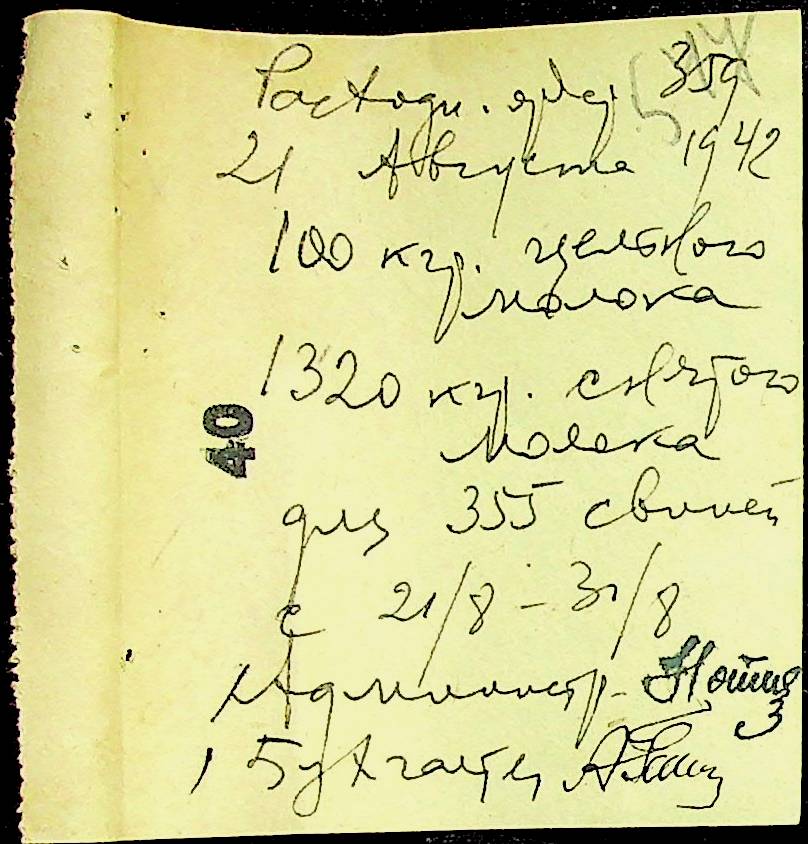 Расходн. орд. 359
544
21 Августа 1942
100 кгр. цельного
молока
1320 кгр. снятого
молока
40
для 355 свиней
с 21/8 – 31/8
Администр.
Бухгалтер